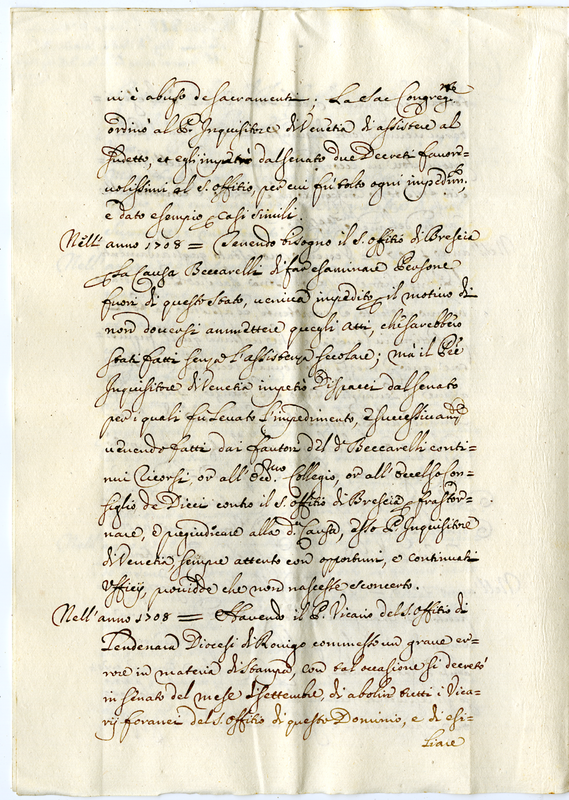 ni è abuso de sacramenti; La Sac Congreg.ne
ordinò al P. Inquisitore di Venetia di assistere al
sudetto, et egli impetrò dal senato due Decreti favore=
volissimi al S. Offitio, per cui fù tolto ogni impedim.to
e dato esempio p casi simili.
Nell'anno 1708 = Tenendo bisogno il S. Offitio di Brescia
p La Causa Beccarelli di far esaminare Persone
fuori di questo stato, veniva impedito p il motivo di
non doversi ammettere quegli atti, che sarebbero
stati fatti senza l'assistenza secolare; mà il P.re
Inquisitore di Venetia impetrò Dispacci dal senato
per i quali fù levato l'impedimento, e successivam.te
venendo fatti dai fautori del d.o Beccarelli conti=
nui ricorsi, or all'Ecc.mo Collegio, or all'Eccelso Con=
siglio de Dieci contro il S. Offitio di Brescia p frastor=
nare, e pregiudicare alla d.a Causa, esso P. Inquisitore
di Venetia sempre attento con opportuni, e continuati
Ufficij, providde che non nascesse sconcerto.
Nell'anno 1708 = Havendo il P. Vicario del S. Offitio di
Lendenara Diocesi di Rovigo commesso un grave er=
rore in materia di stampa, con tal occasione si decretò
in senato del mese di settembre, di abolir tutti i Vica=
rij foranei del S. Offitio di questo Dominio, e di esi=
liare